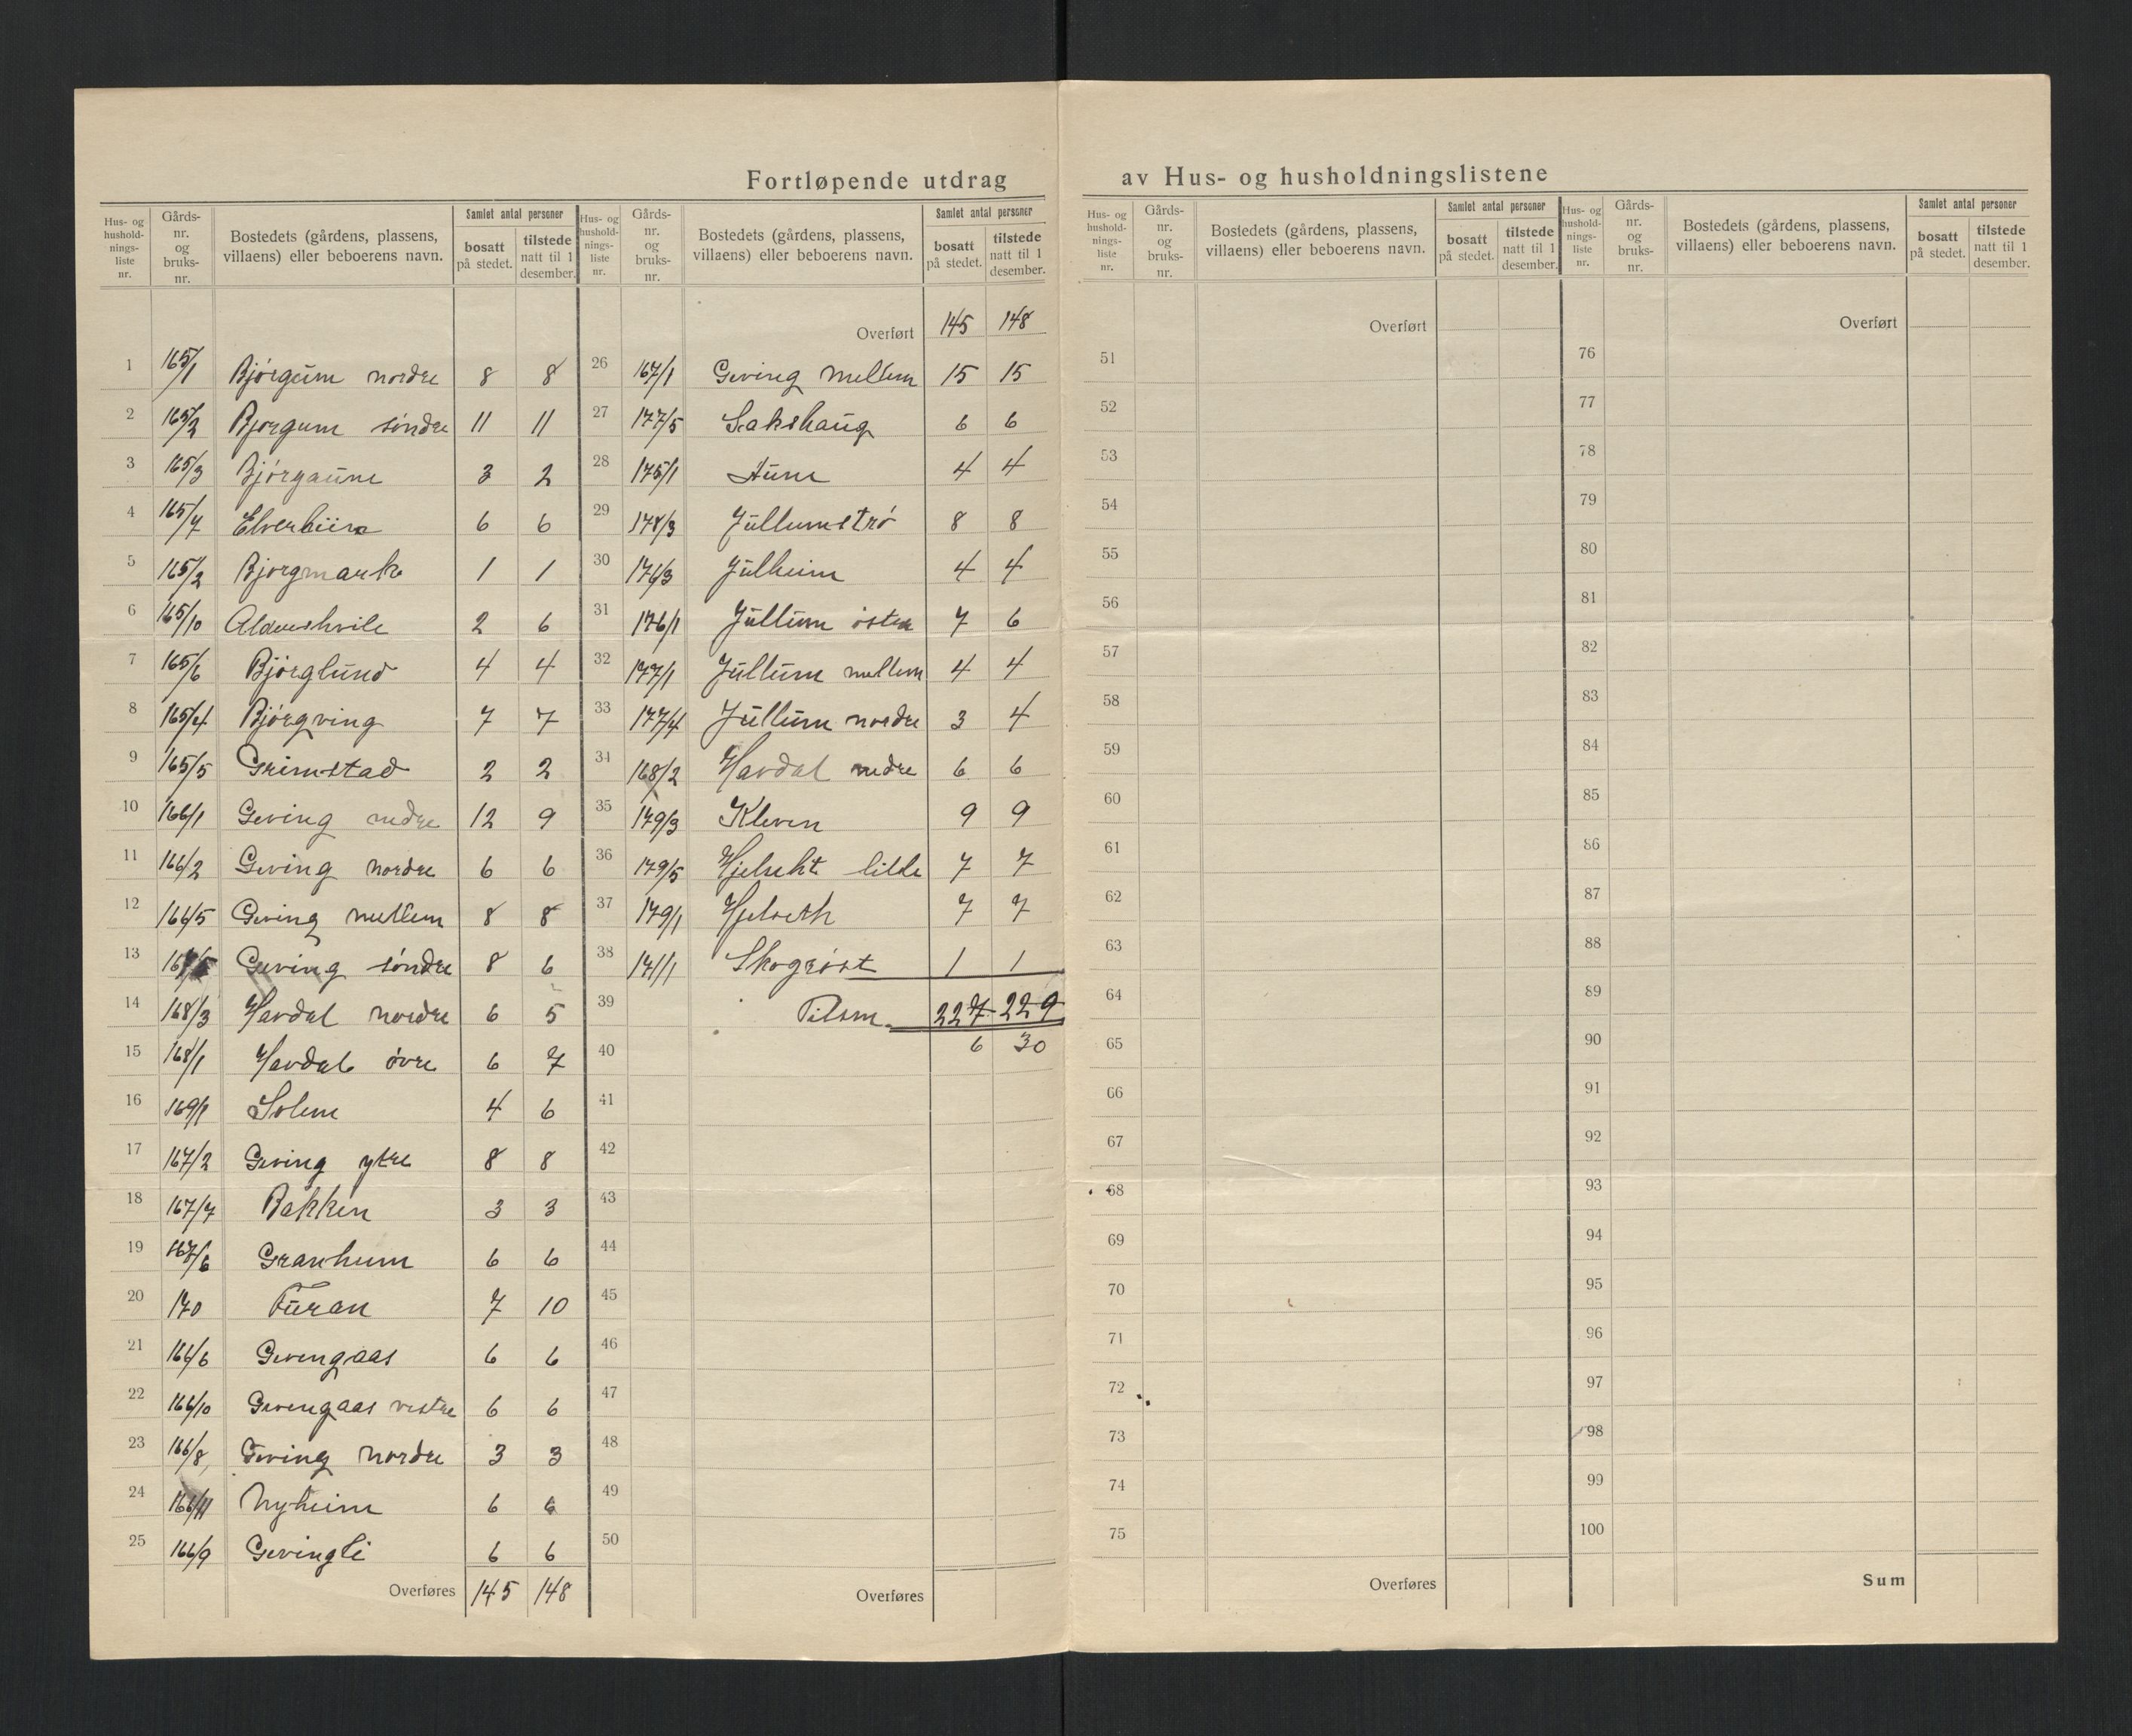 Fortløpende utdrag av Hus- og husholdningslistene
Hus- og husholdningsliste nr. | Gårds-nr. og bruks-nr. | Bostedets (gårdens, plassens, villaens) eller beboerens navn. | Samlet antal personer | bosatt på stedet. | tilstede natt til 1 desember.
1 165/1 Bjørgum nordre 8 8
2 165/2 Bjørgum söndre 11 11
3 165/3 Bjørgaune 3 2
4 165/7 6 6
5 165/2 Bjørgmark 1 1
6 165/10 2 6
7 165/6 Bjørglund 4 4
8 165/4 Bjørgving 7 7
9 165/5 Grimstad 2 2
10 166/1 Geving nedre 12 9
11 166/2 Geving nordre 6 6
12 166/5 Geving mellem 8 8
13 Geving söndre 8 6
14 168/3 Havdal nordre 6 5
15 168/1 Havdal övre 6 7
16 169/1 Solem 4 6
17 167/2 Geving ytre 8 8
18 167/7 Bakken 3 3
19 167/6 Granheim 6 6
20 170 Furan 7 10
21 166/6 Gevingaas 6 6
22 166/10 Gevingaas vestre 6 6
23 166/8 Geving nordre 3 3
24 166/11 Nyheim 6 6
25 166/9 Gevingli 6 6
Overføres 145 148
Hus- og husholdningsliste nr. | Gårds-nr. og bruks-nr. | Bostedets (gårdens, plassens, villaens) eller beboerens navn. | Samlet antal personer | bosatt på stedet. | tilstede natt til 1 desember.
Overført 145 148
26 167/1 Geving mellem 15 15
27 177/5 Sakshaug 6 6
28 175/1 Aune 4 4
29 178/3 Jullumströ 8 8
30 176/3 Julheim 4 4
31 176/1 Jullum östre 7 6
32 177/1 Jullum mellem 4 4
33 177/4 Jullum nordre 3 4
34 168/2 Havdal nedre 6 6
35 179/3 Kleven 9 9
36 179/5 lille 7 7
37 179/1 Hjelseth 7 7
38 171/1 Skogröst 1 1
39 Tilsm. 227 229
40 6 30
41
42
43
44
45
46
47
48
49
50
Overføres
Hus- og husholdningsliste nr. | Gårds-nr. og bruks-nr. | Bostedets (gårdens, plassens, villaens) eller beboerens navn. | Samlet antal personer | bosatt på stedet. | tilstede natt til 1 desember.
Overført
51
52
53
54
55
56
57
58
59
60
61
62
63
64
65
66
67
68
69
70
71
72
73
74
75
Overføres
Hus- og husholdningsliste nr. | Gårds-nr. og bruks-nr. | Bostedets (gårdens, plassens, villaens) eller beboerens navn. | Samlet antal personer | bosatt på stedet. | tilstede natt til 1 desember.
Overført
76
77
78
79
80
81
82
83
84
85
86
87
88
89
90
91
92
93
94
95
96
97
98
99
100
Sum